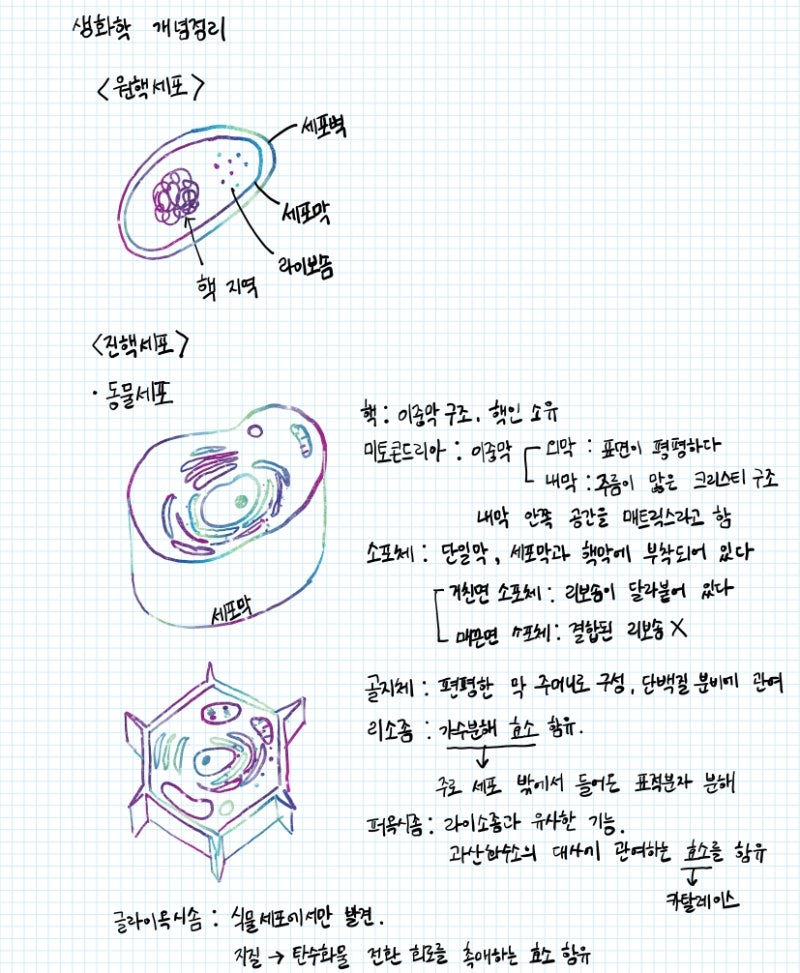 생화학 개념정리
<원핵세포>
세포벽
세포막
라이보솜
핵 지역
<진핵세포>
· 동물세포
세포막
핵 : 이중막 구조, 핵인 소유
미토콘드리아 : 이중막
외막 : 표면이 평평하다
내막 : 주름이 많은 크리스티 구조
내막 안쪽 공간을 매트릭스라고 함
소포체 : 단일막, 세포막과 핵막에 부착되어 있다
거친면 소포체 : 리보솜이 달라붙어 있다
매끈면 소포체 : 결합된 리보솜 X
골지체 : 편평한 막 주머니로 구성, 단백질 분비에 관여
리소좀 : 가수분해 효소 함유.
주로 세포 밖에서 들어온 표적분자 분해
퍼옥시좀 : 라이소좀과 유사한 기능.
과산화수소의 대사에 관여하는 효소를 함유
카탈레이스
글라이옥시솜 : 식물세포에서만 발견.
지질 → 탄수화물 전환 회로를 촉매하는 효소 함유